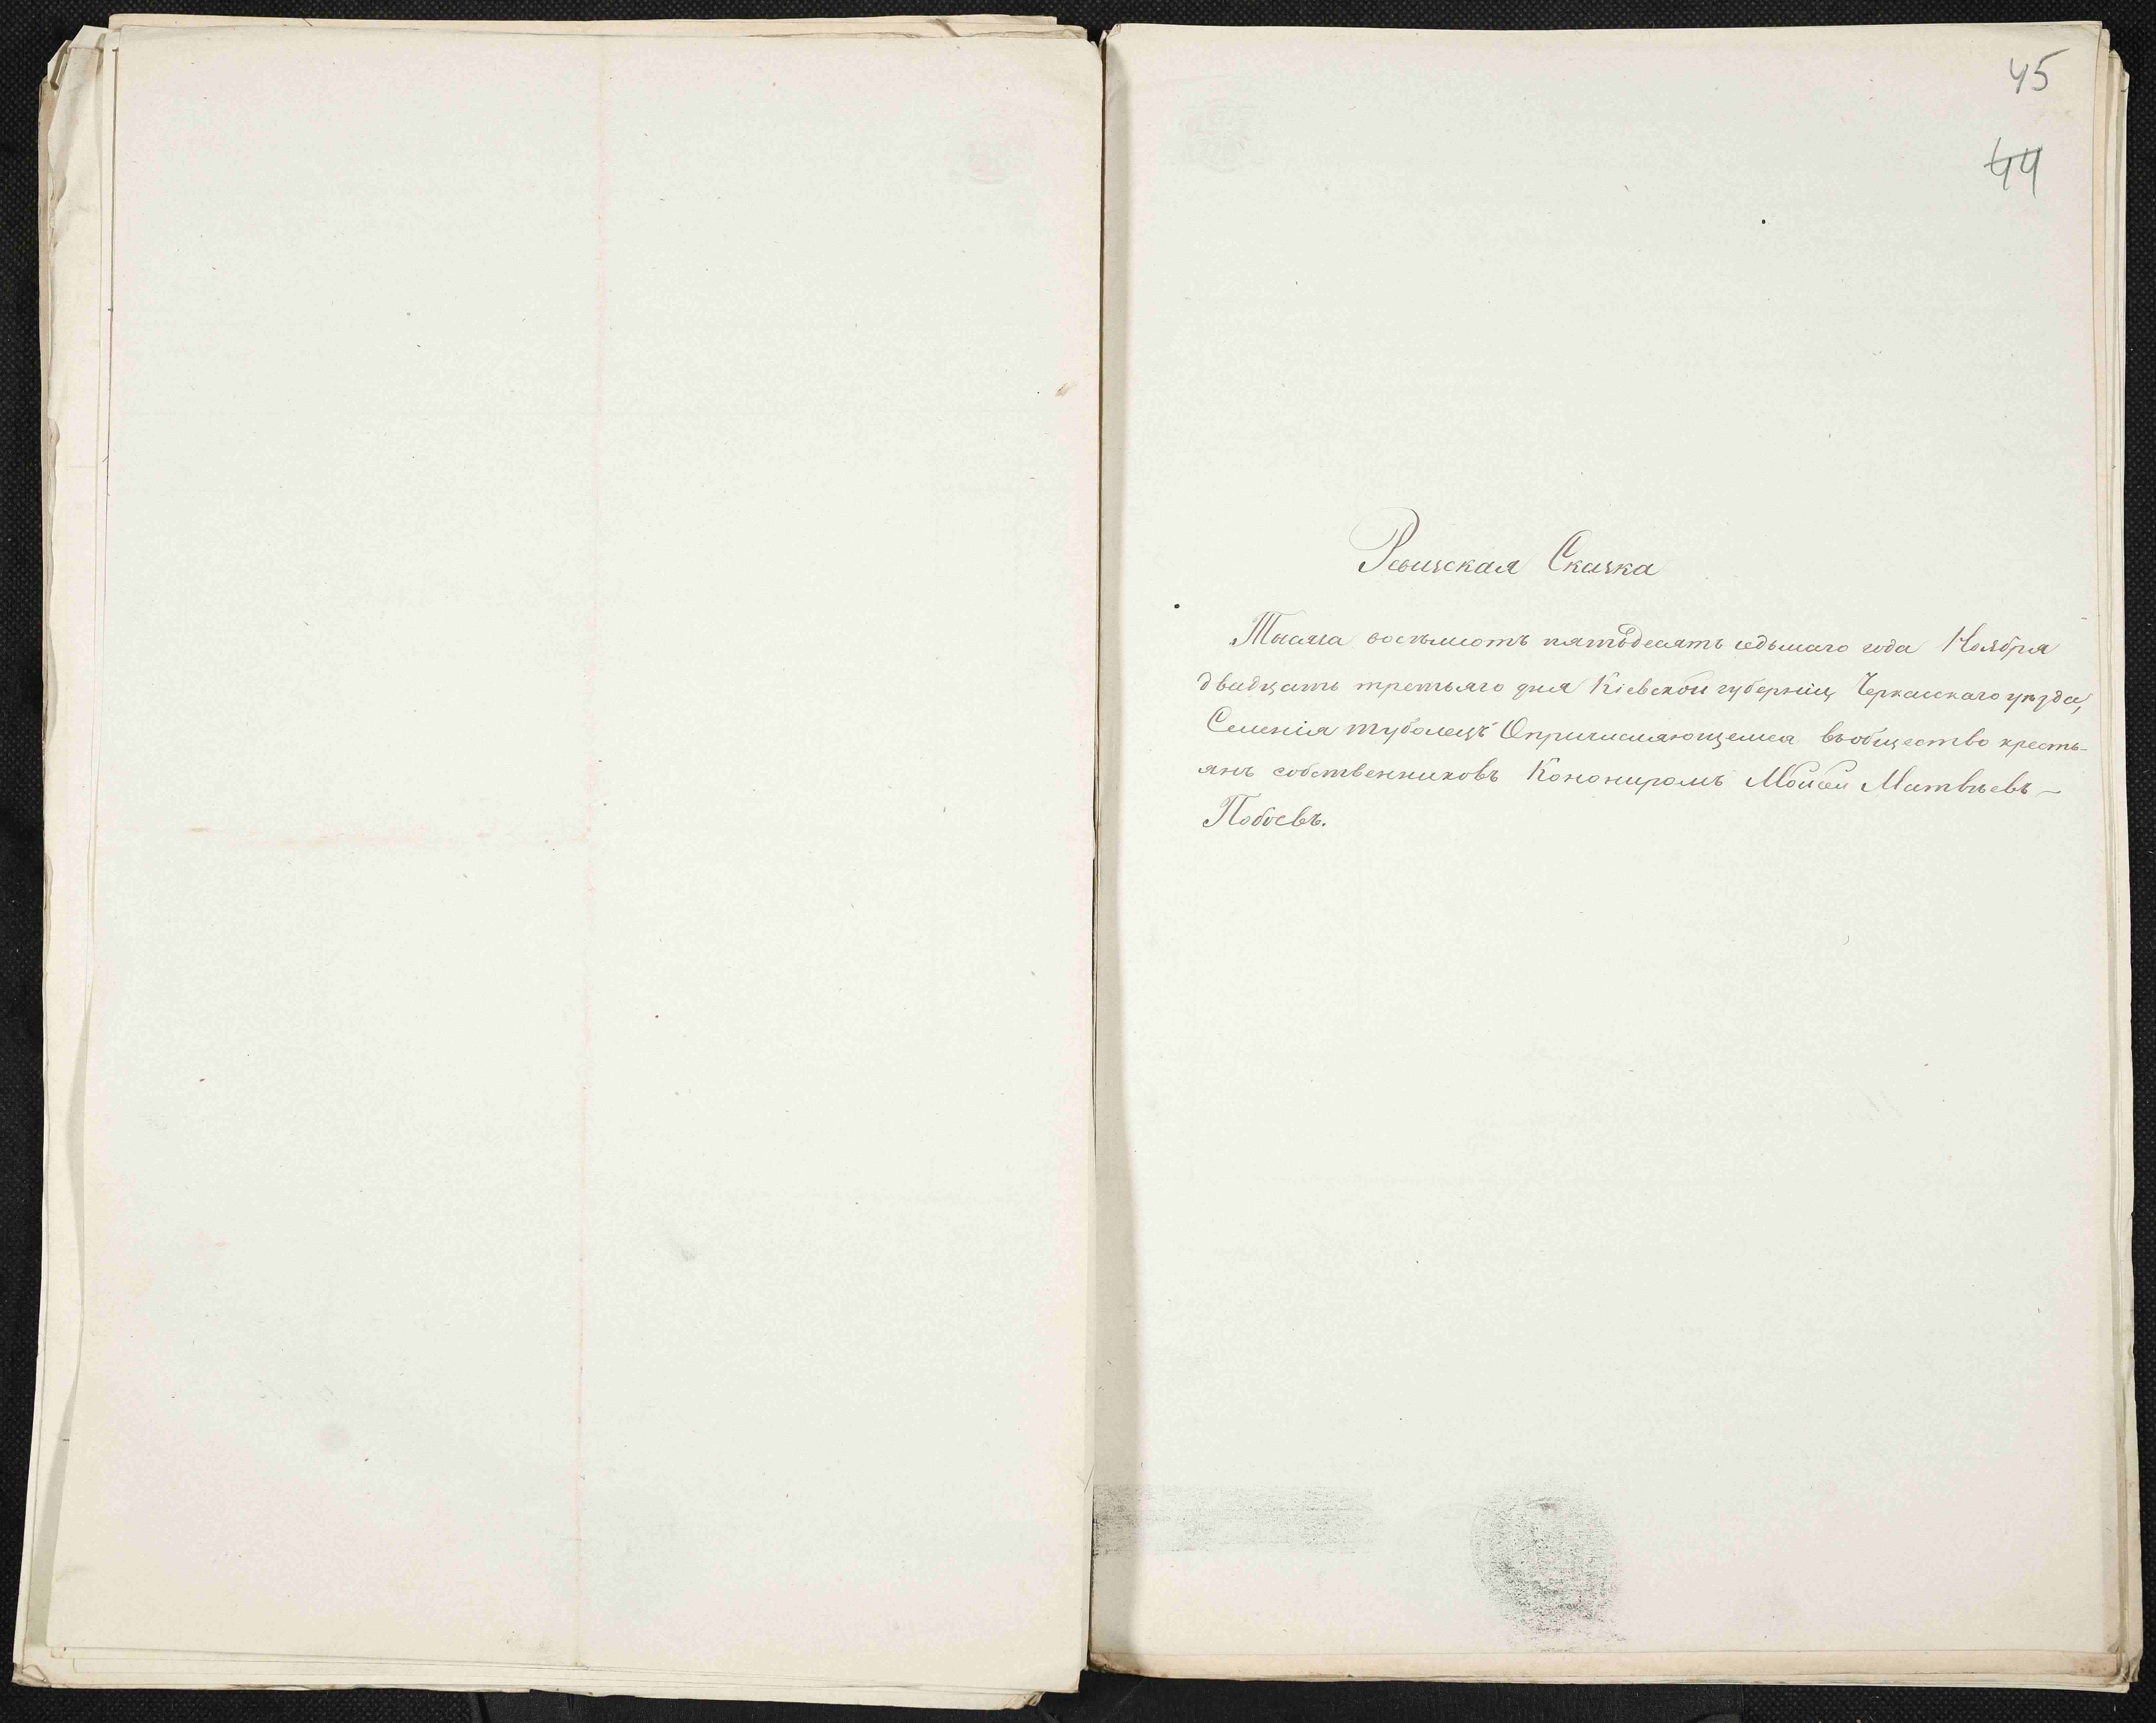 45
44
Ревизская Сказка
Тысяча восемьсотъ пятьдесятъ седьмаго года Ноября
двадцать третьяго дня Кіевской губерніи Черкасскаго уѣзда,
Селенія Туболецъ О причисляющемся въ общество кресть-
янъ собственниковъ Канониромъ Мойсеи Матвѣевъ –
Побоевъ.